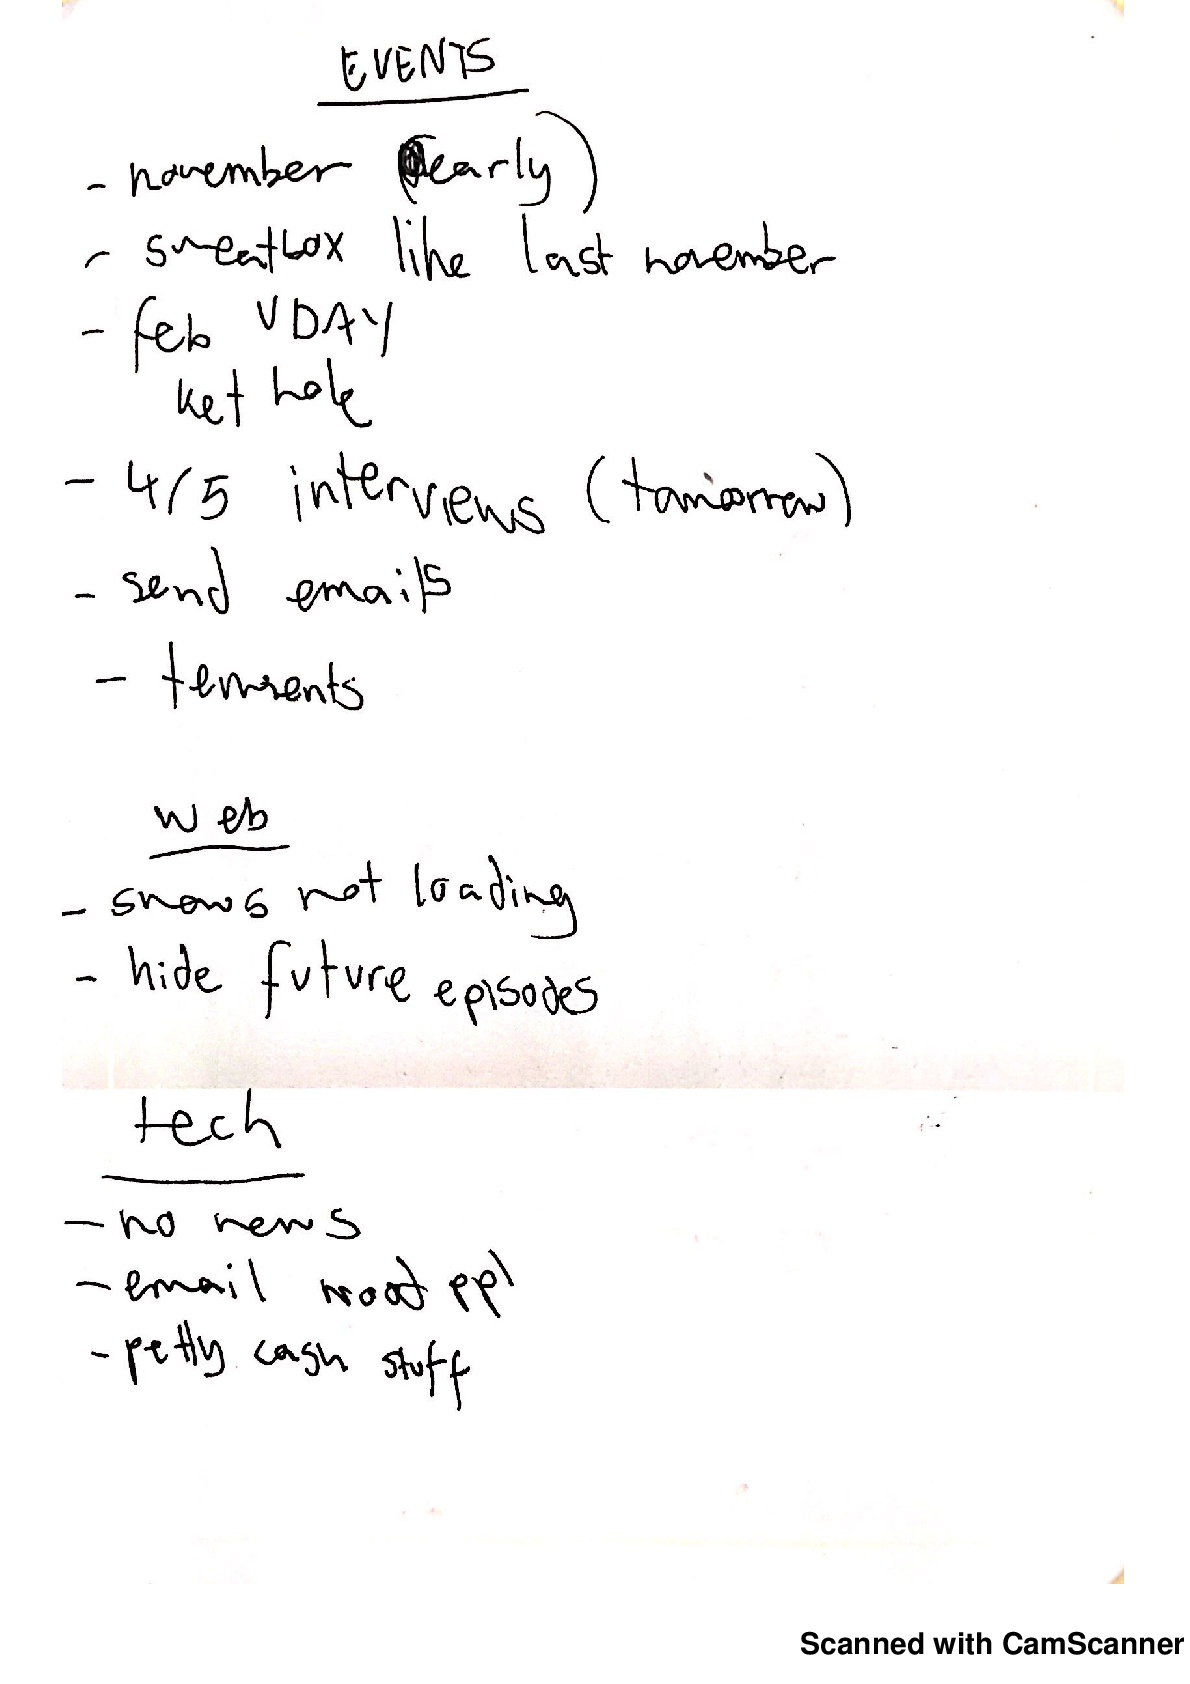 EVENTS
- november (early)
- sweatbox like last november
- feb VDAY
ket hole
- 4/5 interviews (tomorrow)
- send emails
-
web
- shows not loading
- hide future episodes
tech
- no news
- email ppl
- petty cash stuff
Scanned with CamScanner